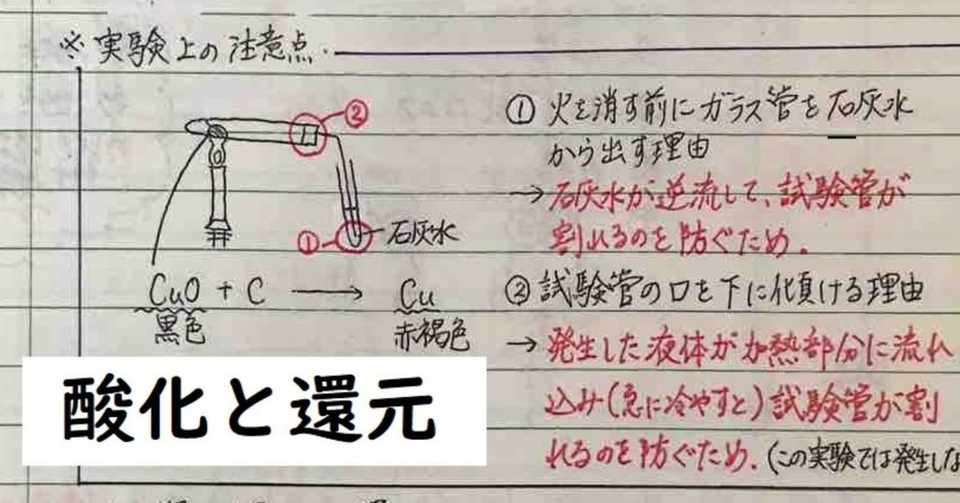 ※実験上の注意点.
②
①
石灰水
CuO + C → Cu
黒色
赤褐色
① 火を消す前にガラス管を石灰水
から出す理由
→ 石灰水が逆流して、試験管が
割れるのを防ぐため.
② 試験管の口を下に傾ける理由
→ 発生した液体が加熱部分に流れ
込み(急に冷やすと)試験管が割
れるのを防ぐため.(この実験では発生しな
酸化と還元